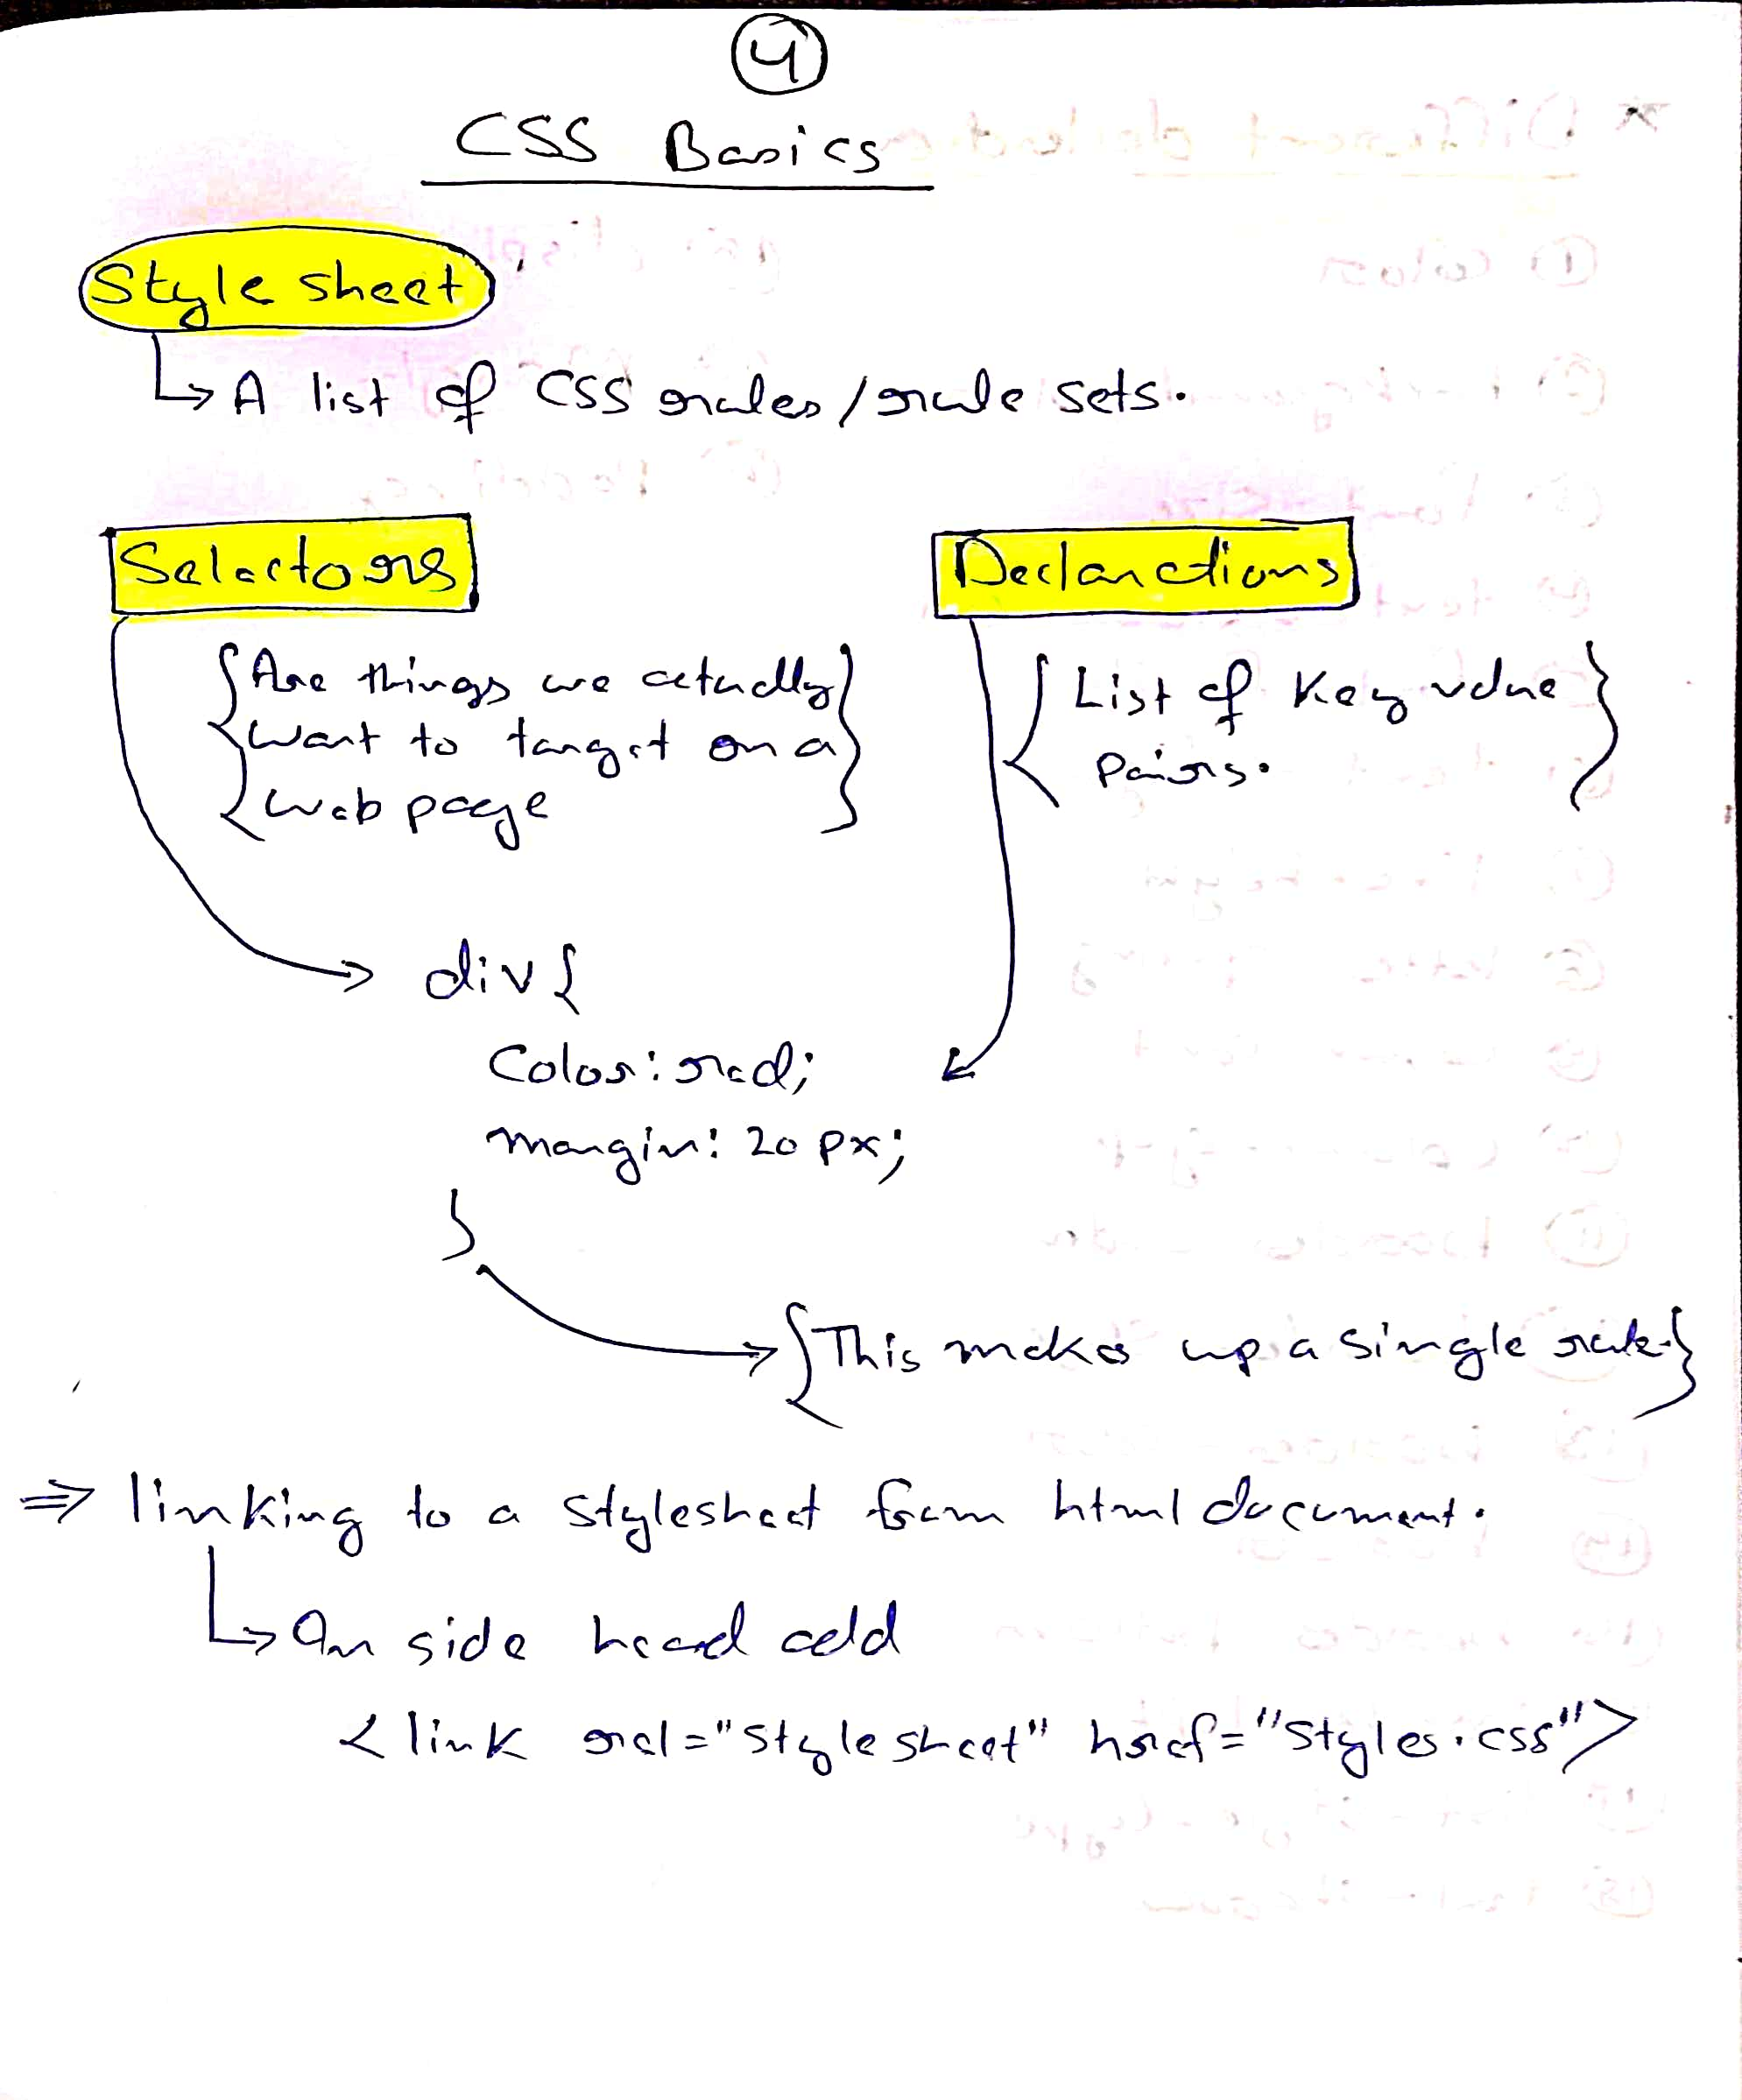 4
CSS Basics
Style sheet
A list of CSS rules / rule sets.
Selectors
Declarations
{ Are things we actually
want to target on a
web page }
{ List of Key value
pairs. }
div {
Color: red;
margin: 20 px;
}
{ This makes up a single rule. }
⇒ linking to a stylesheet from html document.
On side head add
< link rel="Style sheet" href="Styles.css">